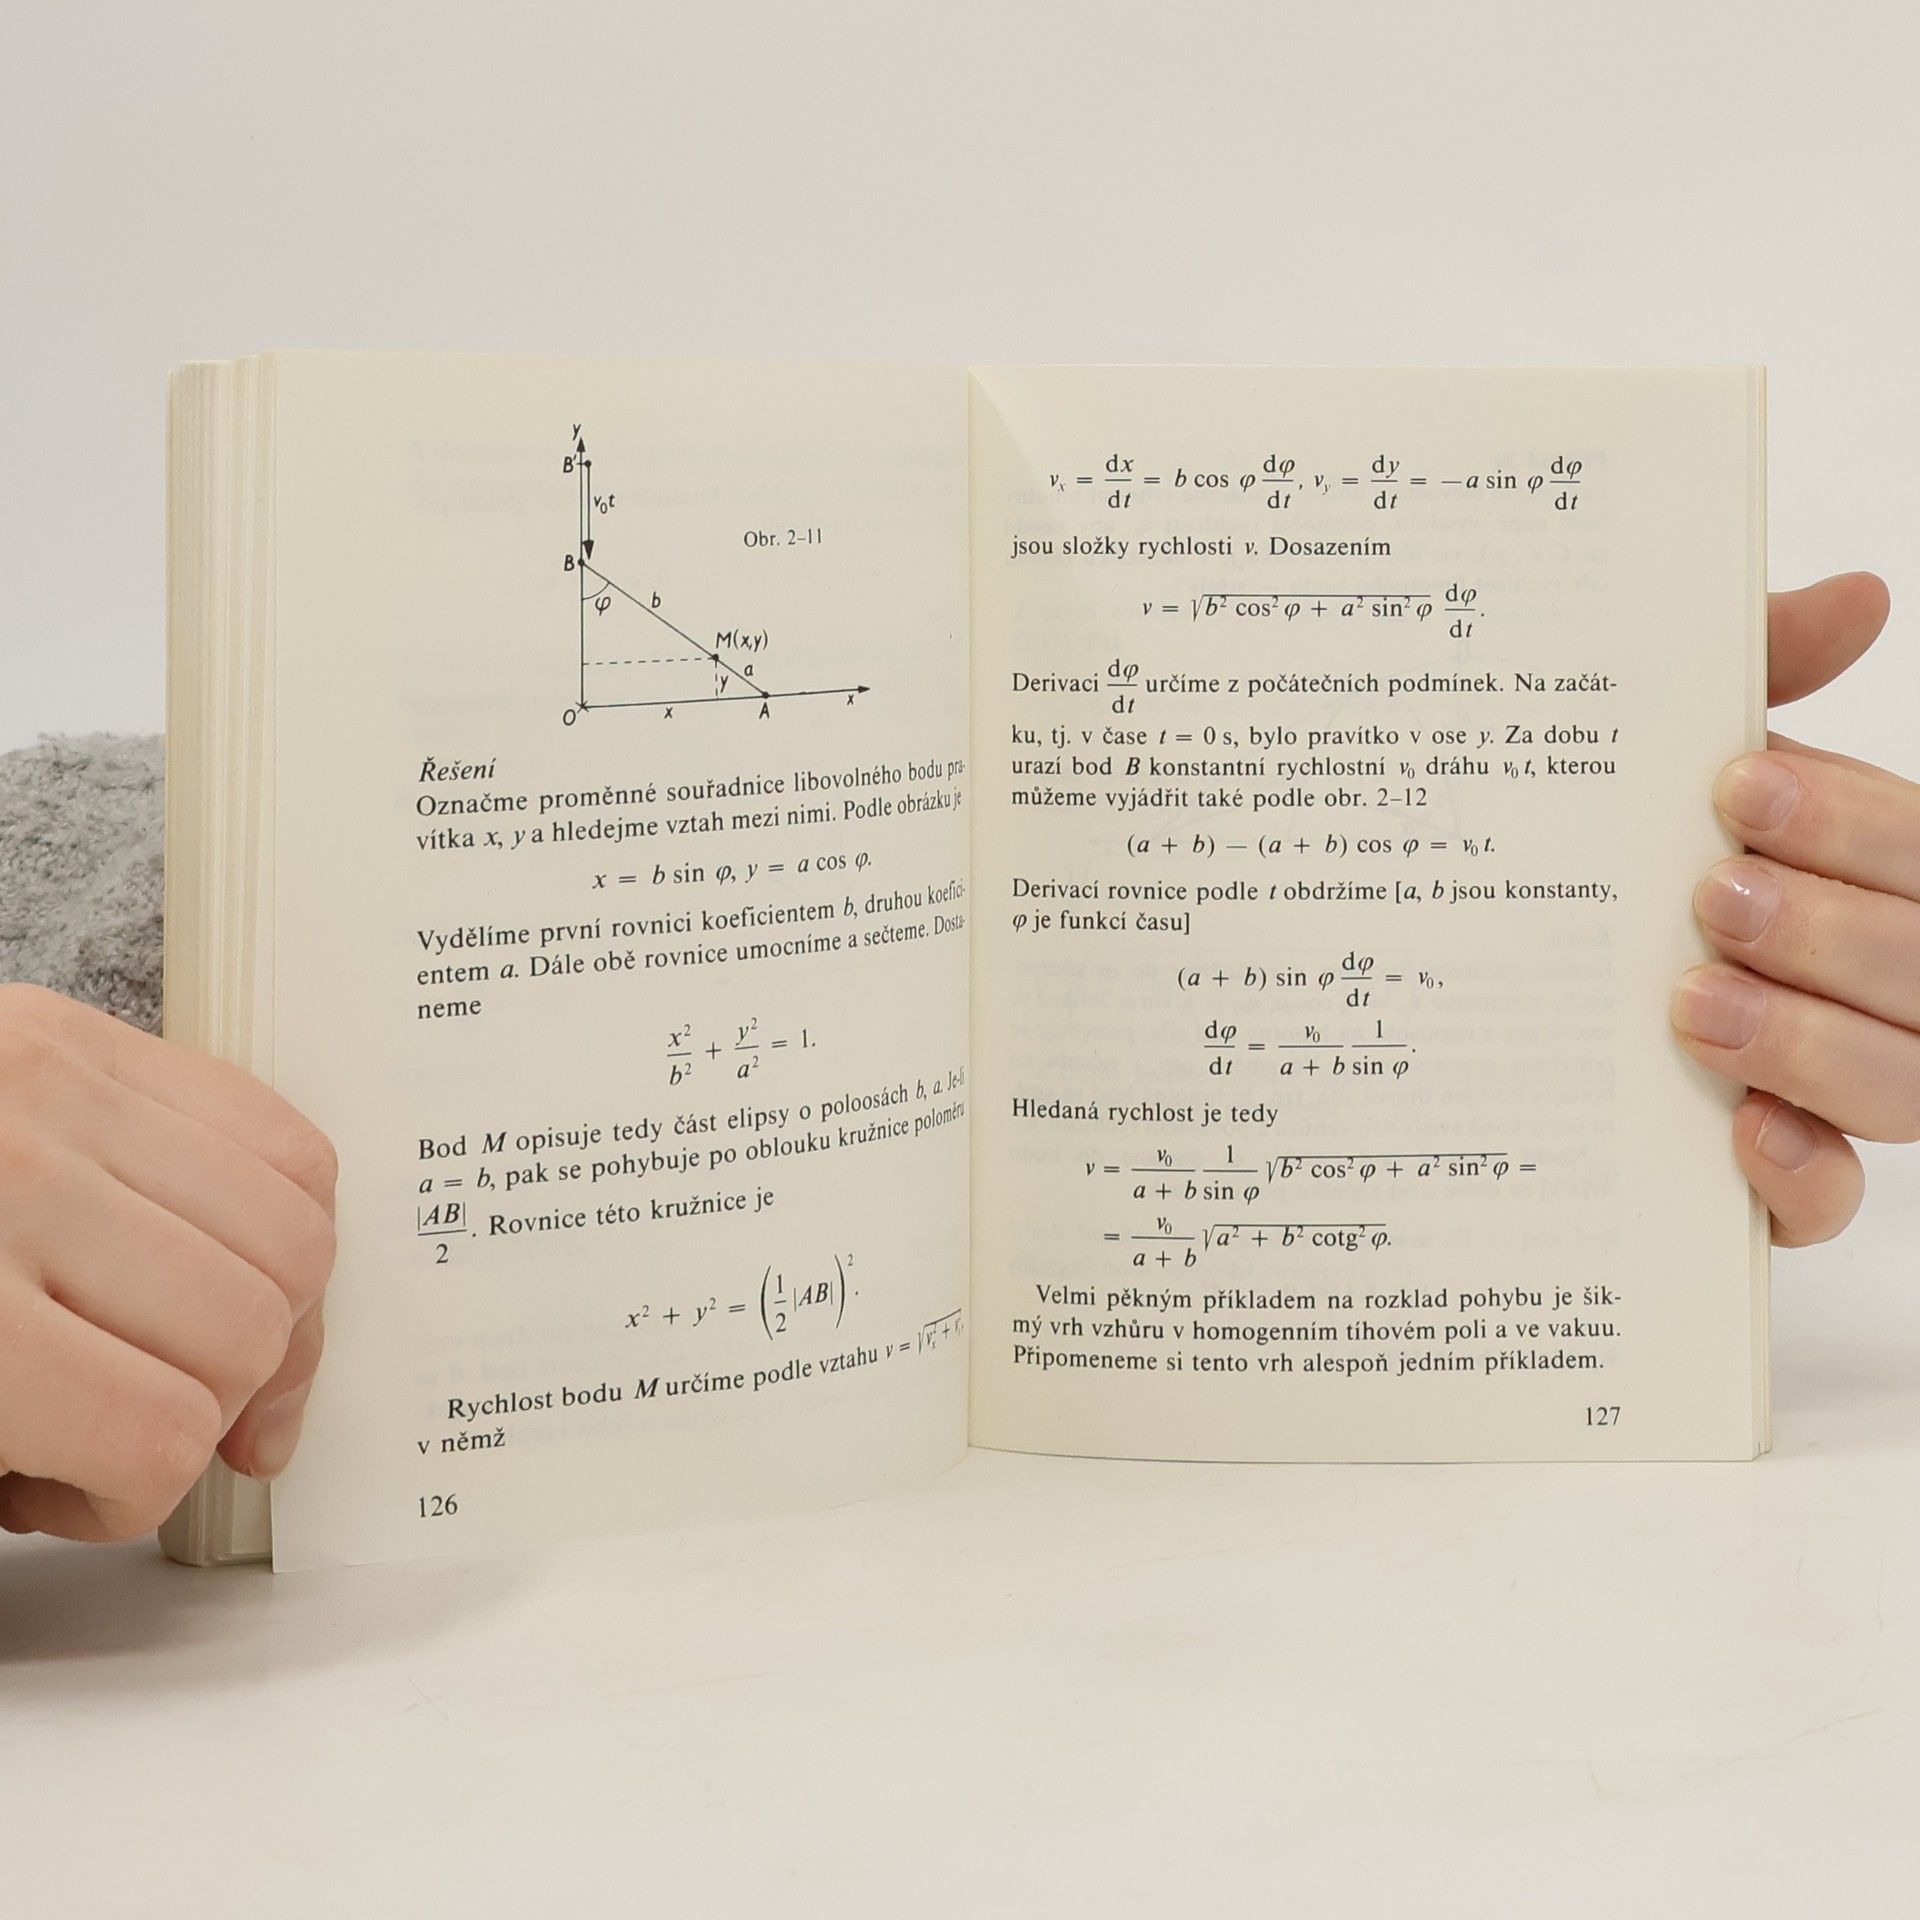 y
B'
v₀t
Obr. 2–11
B
φ
b
M(x,y)
a
y
O
x
A
x
Řešení
Označme proměnné souřadnice libovolného bodu pra-
vítka x, y a hledejme vztah mezi nimi. Podle obrázku je
x = b sin φ, y = a cos φ.
Vydělíme první rovnici koeficientem b, druhou koefici-
entem a. Dále obě rovnice umocníme a sečteme. Dosta-
neme
x²/b² + y²/a² = 1.
Bod M opisuje tedy část elipsy o poloosách b, a. Je-li
a = b, pak se pohybuje po oblouku kružnice poloměru
|AB|/2. Rovnice této kružnice je
x² + y² = (1/2 |AB|)².
Rychlost bodu M určíme podle vztahu v = √(vₓ² + v_y²),
v němž
126
vₓ = dx/dt = b cos φ dφ/dt, v_y = dy/dt = −a sin φ dφ/dt
jsou složky rychlosti v. Dosazením
v = √(b² cos² φ + a² sin² φ) dφ/dt.
Derivaci dφ/dt určíme z počátečních podmínek. Na začát-
ku, tj. v čase t = 0 s, bylo pravítko v ose y. Za dobu t
urazí bod B konstantní rychlostní v₀ dráhu v₀ t, kterou
můžeme vyjádřit také podle obr. 2–12
(a + b) — (a + b) cos φ = v₀ t.
Derivací rovnice podle t obdržíme [a, b jsou konstanty,
φ je funkcí času]
(a + b) sin φ dφ/dt = v₀,
dφ/dt = v₀/(a + b) 1/(sin φ).
Hledaná rychlost je tedy
v = v₀/(a + b) 1/(sin φ) √(b² cos² φ + a² sin² φ) =
= v₀/(a + b) √(a² + b² cotg² φ).
Velmi pěkným příkladem na rozklad pohybu je šik-
mý vrh vzhůru v homogenním tíhovém poli a ve vakuu.
Připomeneme si tento vrh alespoň jedním příkladem.
127